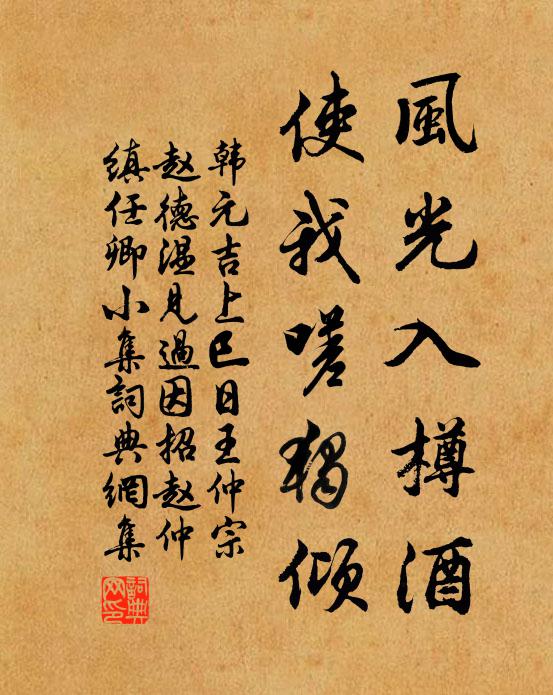 風光入樽酒
使我嗟獨傾
韩元吉上巳日王仲宗
赵德温見過因招赵仲
缜任卿小集詞典網集
詞典网印